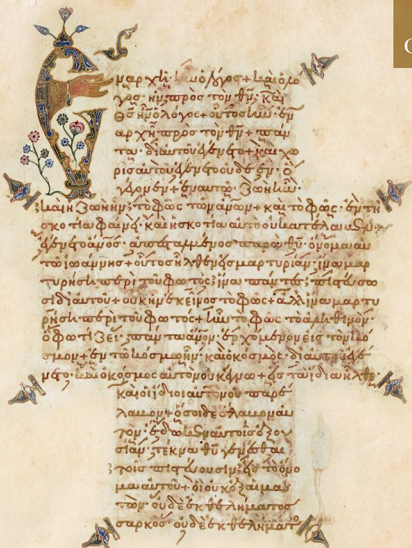 Ἐν ἀρχῆ ἦν ὁ λόγος + καὶ ὁ λό
γος ἦν πρὸς τὸν θν· καὶ
θς ἦν ὁ λόγος + οὗτος ἦν ἐν
ἀρχῆ πρὸς τὸν θν + πάν
τα δι' αὐτοῦ ἐγένετο + καὶ χω
ρὶς αὐτοῦ ἐγένετο οὐδὲ ἓν ὃ
γέγονεν + ἐν αὐτῶ ζωὴ ἦν·
καὶ ἡ ζωὴ ἦν τὸ φῶς τῶν ἀνων + καὶ τὸ φῶς ἐν τῆ
σκοτία φαίνει καὶ ἡ σκοτία αὐτὸ οὐ κατέλαβεν
ἐγένετο ἀνος ἀπεσταλμένος παρὰ θυ ὄνομα αὐ
τῶ ἰωάννης + οὗτος ἦλθεν εἰς μαρτυρίαν· ἵνα μαρ
τυρήση περὶ τοῦ φωτός· ἵνα πάντες πιστεύσω
σι δι' αὐτοῦ + οὐκ ἦν ἐκεῖνος τὸ φῶς + ἀλλ' ἵνα μαρτυ
ρήση περὶ τοῦ φωτός + ἦν τὸ φῶς τὸ ἀληθινὸν
ὃ φωτίζει πάντα ἄνον ἐρχόμενον εἰς τὸν κό
σμον + ἐν τῶ κόσμω ἦν καὶ ὁ κόσμος δι' αὐτοῦ ἐγέ
νετο· καὶ ὁ κόσμος αὐτὸν οὐκ ἔγνω + εἰς τὰ ἴδια ἦλθε
καὶ οἱ ἴδιοι αὐτὸν οὐ παρέ
λαβον + ὅσοι δὲ ἔλαβον αὐ
τὸν ἔδωκεν αὐτοῖς ἐξου
σίαν τέκνα θυ γενέσθαι
τοῖς πιστεύουσιν εἰς τὸ ὄνο
μα αὐτοῦ + οἳ οὐκ ἐξ αἱμά
των οὐδὲ ἐκ θελήματος
σαρκὸς οὐδὲ ἐκ θελήματ